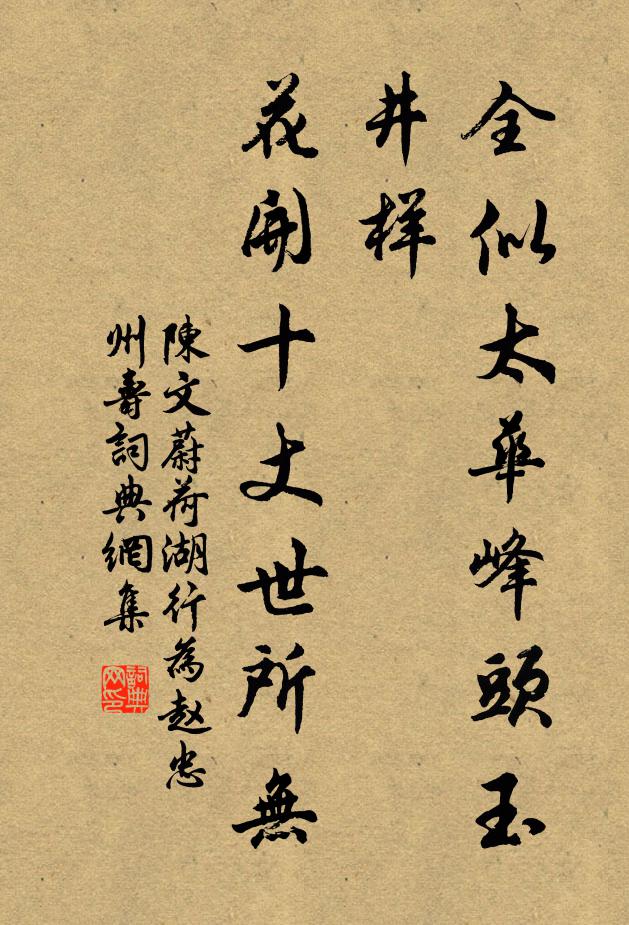 全似太华峰頭玉
井样
花開十丈世所無
陳文蔚荷湖行為赵忠
州壽詞典網集
詞典
网印